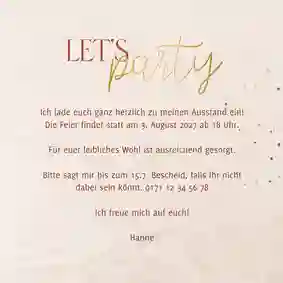 LET'S
party
Ich lade euch ganz herzlich zu meinen Ausstand ein!
Die Feier findet statt am 3. August 2027 ab 18 Uhr.
Für euer leibliches Wohl ist ausreichend gesorgt.
Bitte sagt mir bis zum 15.7. Bescheid, falls ihr nicht
dabei sein könnt. 0171 12 34 56 78
Ich freue mich auf euch!
Hanne